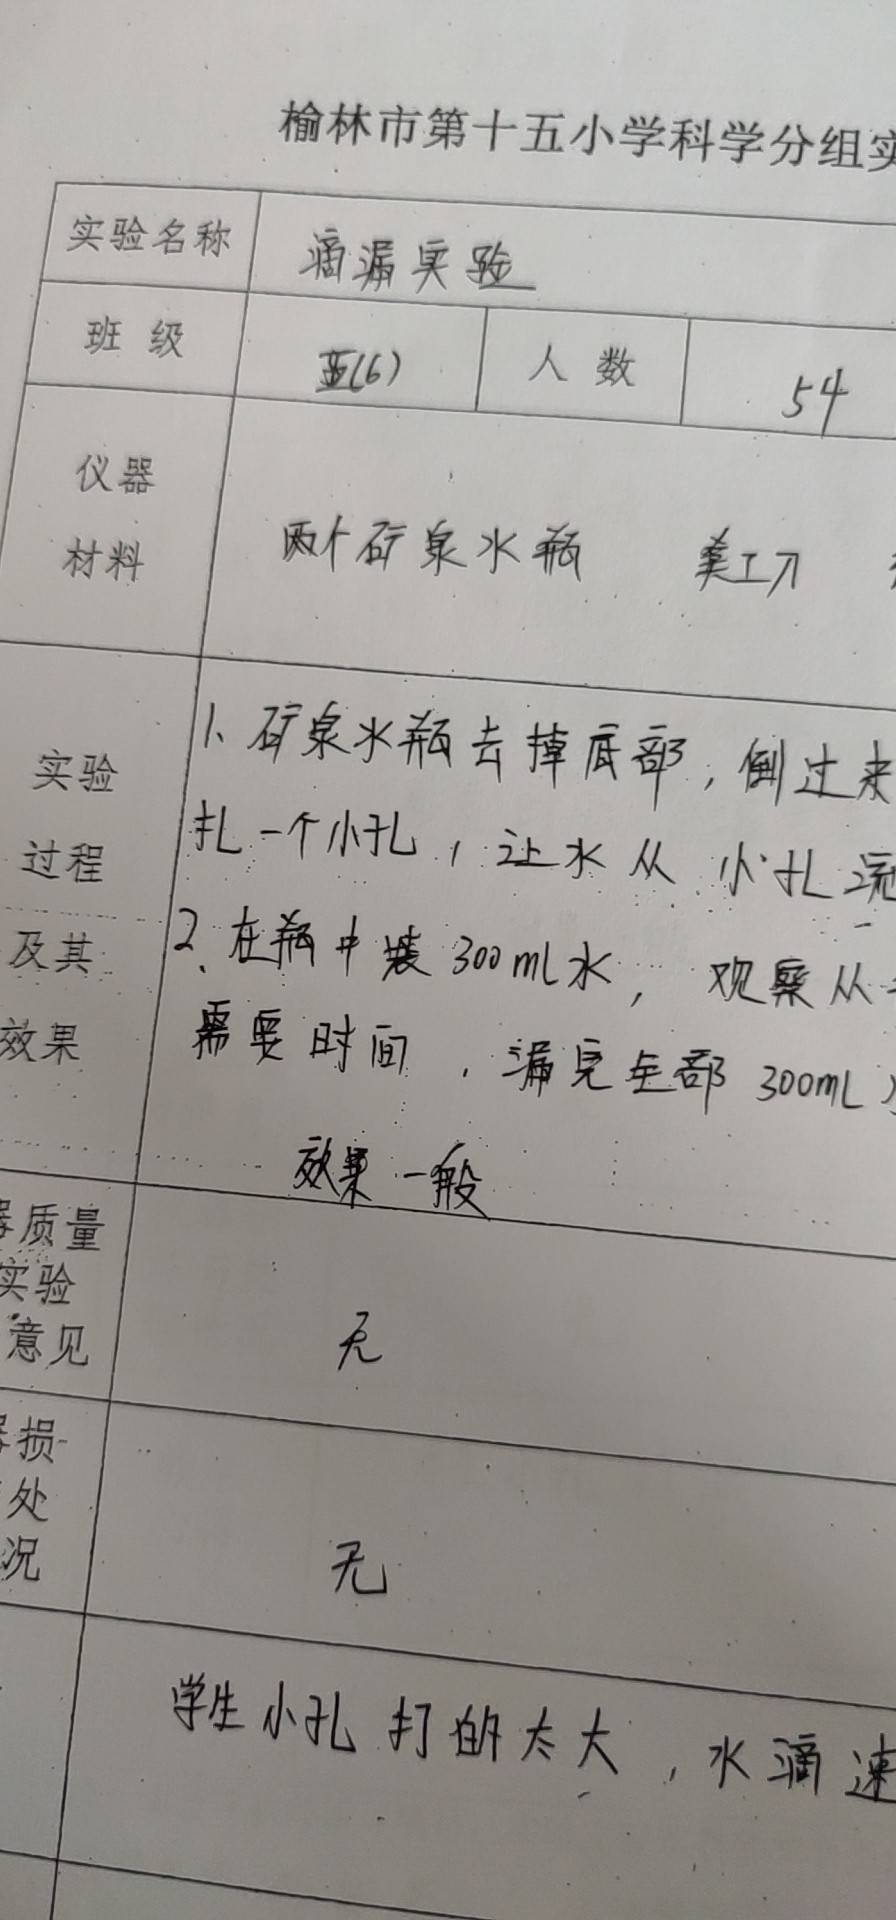 榆林市第十五小学科学分组实
实验名称 滴漏实验
班 级 五(6) 人 数 54
仪器
材料
两个矿泉水瓶 美工刀
实验
过程
及其
效果
1、矿泉水瓶去掉底部，倒过来
扎一个小孔，让水从小孔流
2、在瓶中装300ml水，观察从
需要时间，漏完全部300mL
效果一般
质量
实验
意见
无
损
处
况
无
学生小孔打的太大，水滴速